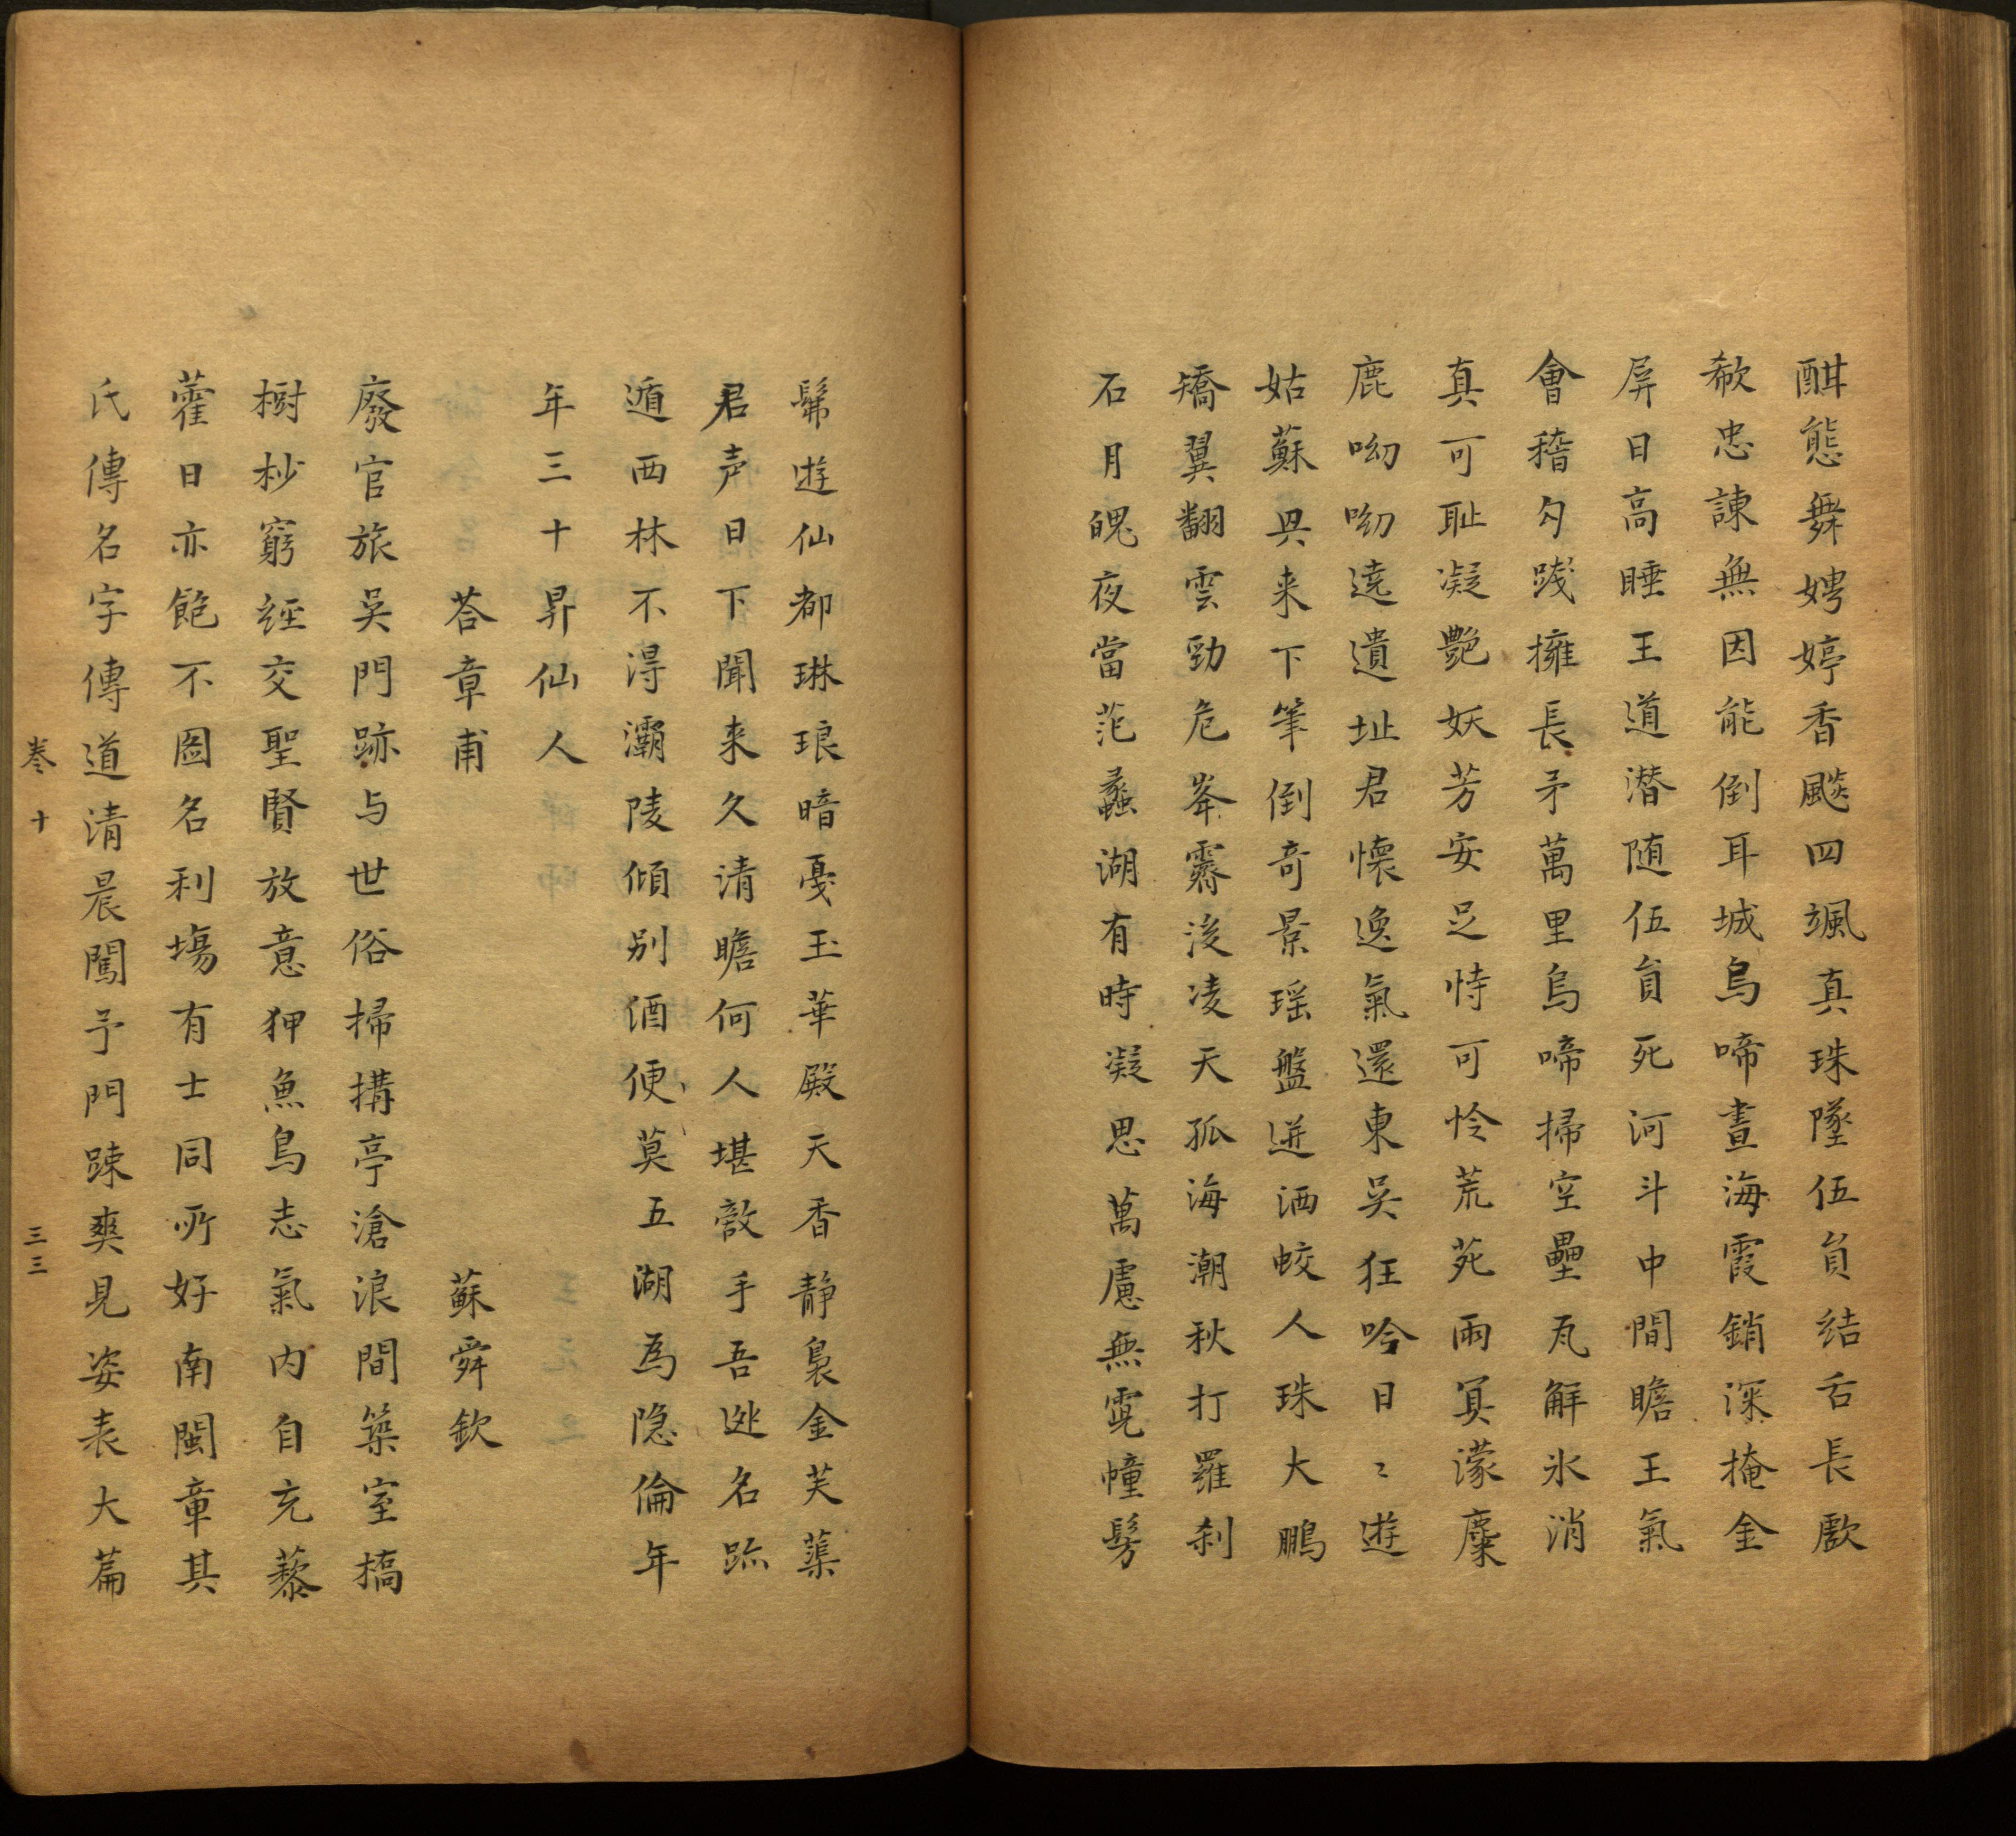 酣態舞娉婷香飈四颯真珠墜伍員結舌長歔
欷忠諫無因能倒耳城烏啼晝海霞銷深掩金
屏日高睡王道潜随伍員死河斗中間瞻王氣
會稽勾踐擁長矛萬里烏啼掃空壘瓦解氷消
真可耻凝艷妖芳安足恃可怜荒苑兩冥濛麋
鹿呦呦遶遺址君懷逸氣還東吳狂吟日〻遊
姑蘇興来下筆倒奇景瑶盤迸洒蛟人珠大鵬
矯翼翻雲勁危峯霽後凌天孤海潮秋打羅刹
石月魄夜當范蠡湖有時凝思萬慮無霓幢髣
髴遊仙都琳琅暗戞玉華殿天香静裊金芙蕖
君声日下聞来久清瞻何人堪敵手吾逃名跡
遁西林不淂灞陵傾别酒便莫五湖為隐倫年
年三十昇仙人
荅章甫 蘇舜欽
廢官旅吴門跡与世俗掃搆亭滄浪間築室橋
樹杪窮經交聖賢放意狎魚鳥志氣内自充藜
藿日亦飽不圖名利塲有士同所好南閩章其
氏傳名字傳道清晨闖予門踈爽見姿表大篇
卷十 三三